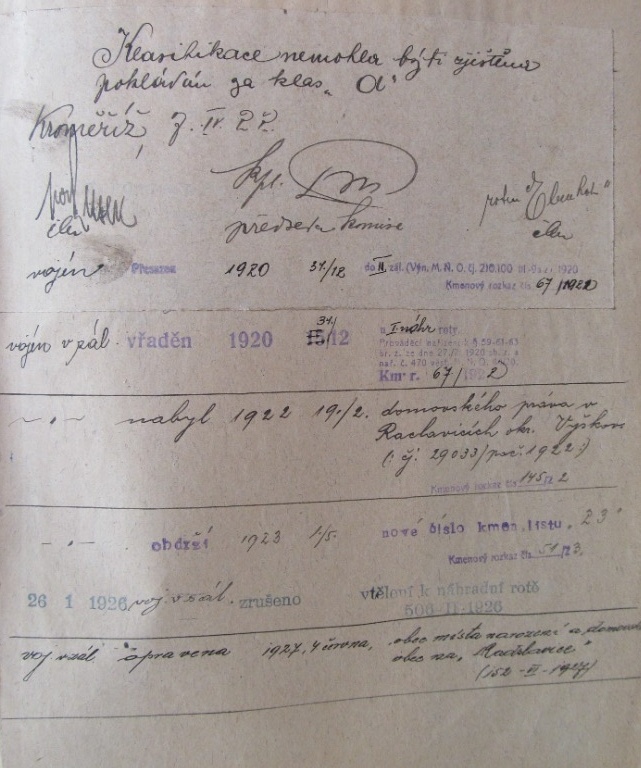 Klasifikace nemohla býti zjištěna
pokládán za klas. „A"
Kroměříž, 7. IV. 22.
kpt.
člen
předseda komise
člen
vojín Přesazen 1920 31/12 do II. zál. (Výn. M. N. O. čj. 210.100 1920
Kmenový rozkaz čís. 67/1922
vojín v zál. vřaděn 1920 31/12 u náhr. roty.
Prováděcí nařízení k § 59-61-63
br. z. ze dne 1920 sb. z. a
nař. č. 470 1920.
Km. r. 67/1922
-"- nabyl 1922 19./2. domovského práva v
Raclavicích okr. Vyškov
(: čj. 29033/ 1922 :)
Kmenový rozkaz čís. 145/22
-"- obdrží 1923 1/5. nové číslo kmen. listu „23"
Kmenový rozkaz čís. 51/23.
26 1 1926 voj. v zál. zrušeno vtělení k náhradní rotě
506-II-1926
voj. v zál. opravena 1927, 4 června, obec místa narození a domovská
obec na „Radslavice"
(152-VI-1927)